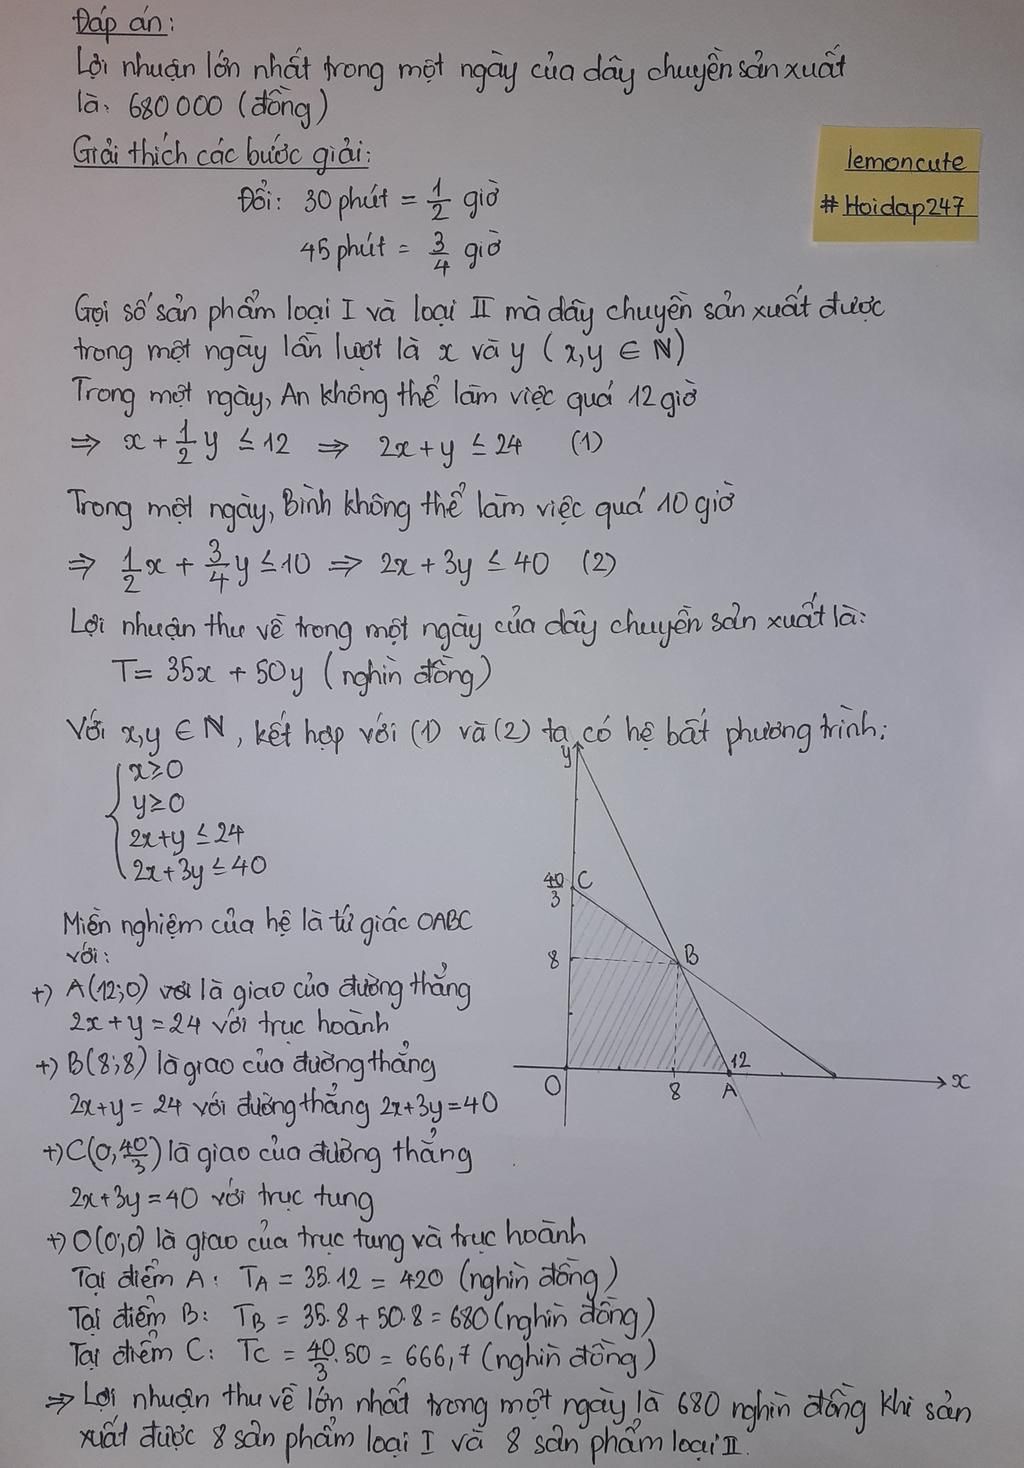 Đáp án:
Lợi nhuận lớn nhất trong một ngày của dây chuyền sản xuất
là: 680 000 (đồng)
Giải thích các bước giải:
lemoncute
#Hoidap247
Đổi: 30 phút = 1/2 giờ
45 phút = 3/4 giờ
Gọi số sản phẩm loại I và loại II mà dây chuyền sản xuất được
trong một ngày lần lượt là x và y (x,y ∈ N)
Trong một ngày, An không thể làm việc quá 12 giờ
⇒ x + 1/2 y ≤ 12 ⇒ 2x + y ≤ 24 (1)
Trong một ngày, Bình không thể làm việc quá 10 giờ
⇒ 1/2 x + 3/4 y ≤ 10 ⇒ 2x + 3y ≤ 40 (2)
Lợi nhuận thu về trong một ngày của dây chuyền sản xuất là:
T = 35x + 50y (nghìn đồng)
Với x,y ∈ N, kết hợp với (1) và (2) ta có hệ bất phương trình:
x ≥ 0
y ≥ 0
2x+y ≤ 24
2x+3y ≤ 40
y
40/3 C
8 B
12
O 8 A x
Miền nghiệm của hệ là tứ giác OABC
với:
+) A(12;0) với là giao của đường thẳng
2x + y = 24 với trục hoành
+) B(8;8) là giao của đường thẳng
2x+y = 24 với đường thẳng 2x+3y=40
+) C(0,40/3) là giao của đường thẳng
2x+3y=40 với trục tung
+) O(0;0) là giao của trục tung và trục hoành
Tại điểm A: TA = 35.12 = 420 (nghìn đồng)
Tại điểm B: TB = 35.8 + 50.8 = 680 (nghìn đồng)
Tại điểm C: TC = 40/3.50 = 666,7 (nghìn đồng)
⇒ Lợi nhuận thu về lớn nhất trong một ngày là 680 nghìn đồng khi sản
xuất được 8 sản phẩm loại I và 8 sản phẩm loại II.